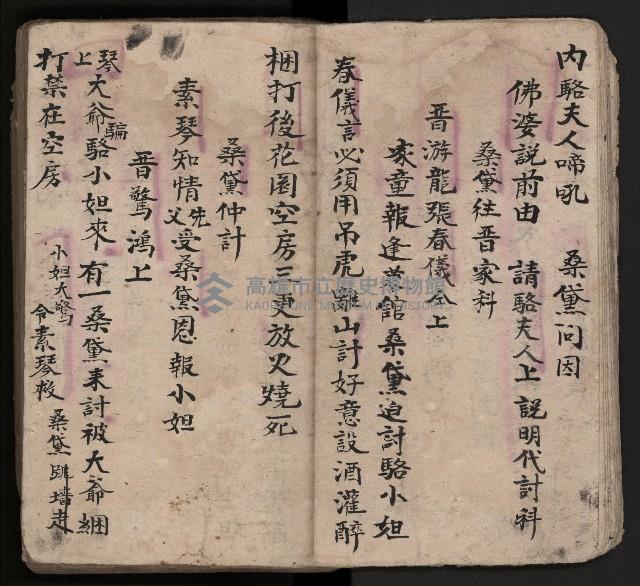 內駱夫人啼吼 桑黛问因
佛婆説前由 請駱夫人上 説明代討科
桑黛往晋家科
晋游龍張春儀仝上
家童報逢着館桑黛迫討駱小姐
春儀言必須用吊虎離山計好意設酒灌醉
梱打後花园空房三更放火燒死
桑黛仲計
素琴知情先父受桑黛恩報小姐
晋驚鴻上
琴上大爺騙駱小姐來 有一桑黛来討被大爺綑
打禁在空房 小姐大驚 令素琴救 桑黛跳墙走
高雄市立歷史博物館
KAOHSIUNG MUSEUM OF HISTORY